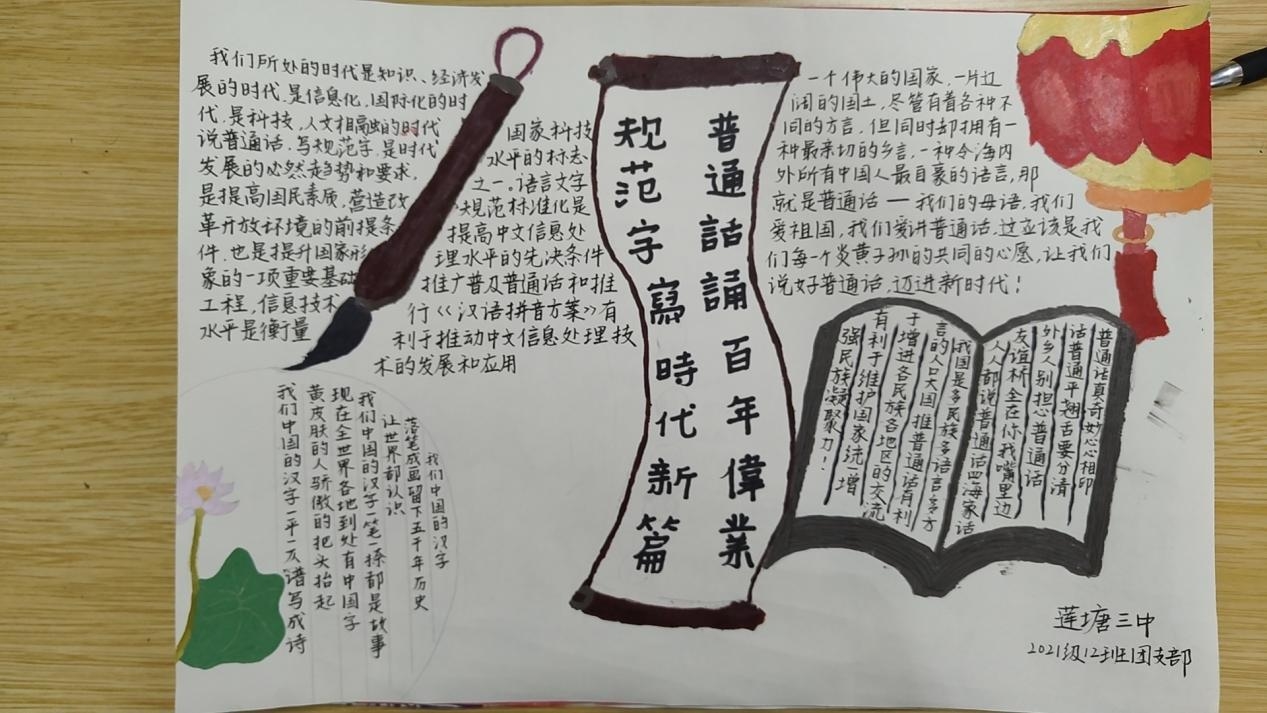 我们所处的时代是知识、经济发
展的时代,是信息化,国际化的时
代,是科技,人文相融的时代
说普通话,写规范字,是时代
发展的必然趋势和要求,
是提高国民素质,营造改
革开放环境的前提条
件,也是提升国家形
象的一项重要基础
工程,信息技术
水平是衡量
国家科技
水平的标志
之一。语言文字
规范标准化是
提高中文信息处
理水平的先决条件
推广普及普通话和推
行《汉语拼音方案》有
利于推动中文信息处理技
术的发展和应用
普通話誦百年偉業
规范字寫時代新篇
一个伟大的国家,一片辽
阔的国土,尽管有着各种不
同的方言,但同时却拥有一
种最亲切的乡言,一种令海内
外所有中国人最自豪的语言,那
就是普通话——我们的母语,我们
爱祖国,我们爱讲普通话,这应该是我
们每一个炎黄子孙的共同的心愿,让我们
说好普通话,迈进新时代!
普通话真奇妙心心相印
话普通平翘舌要分清
外乡人别担心普通话
友谊桥全在你我嘴里边
人人都说普通话四海家话
我国是多民族多语言多方
言的人口大国推普通话有利
于增进各民族各地区的交流
有利于维护国家统一增
强民族凝聚力!
我们中国的汉字
落笔成画留下五千年历史
让世界都认识
我们中国的汉字一笔一捺都是故事
现在全世界各地到处有中国字
黄皮肤的人骄傲的把头抬起
我们中国的汉字一平一仄谱写成诗
莲塘三中
2021级12班团支部